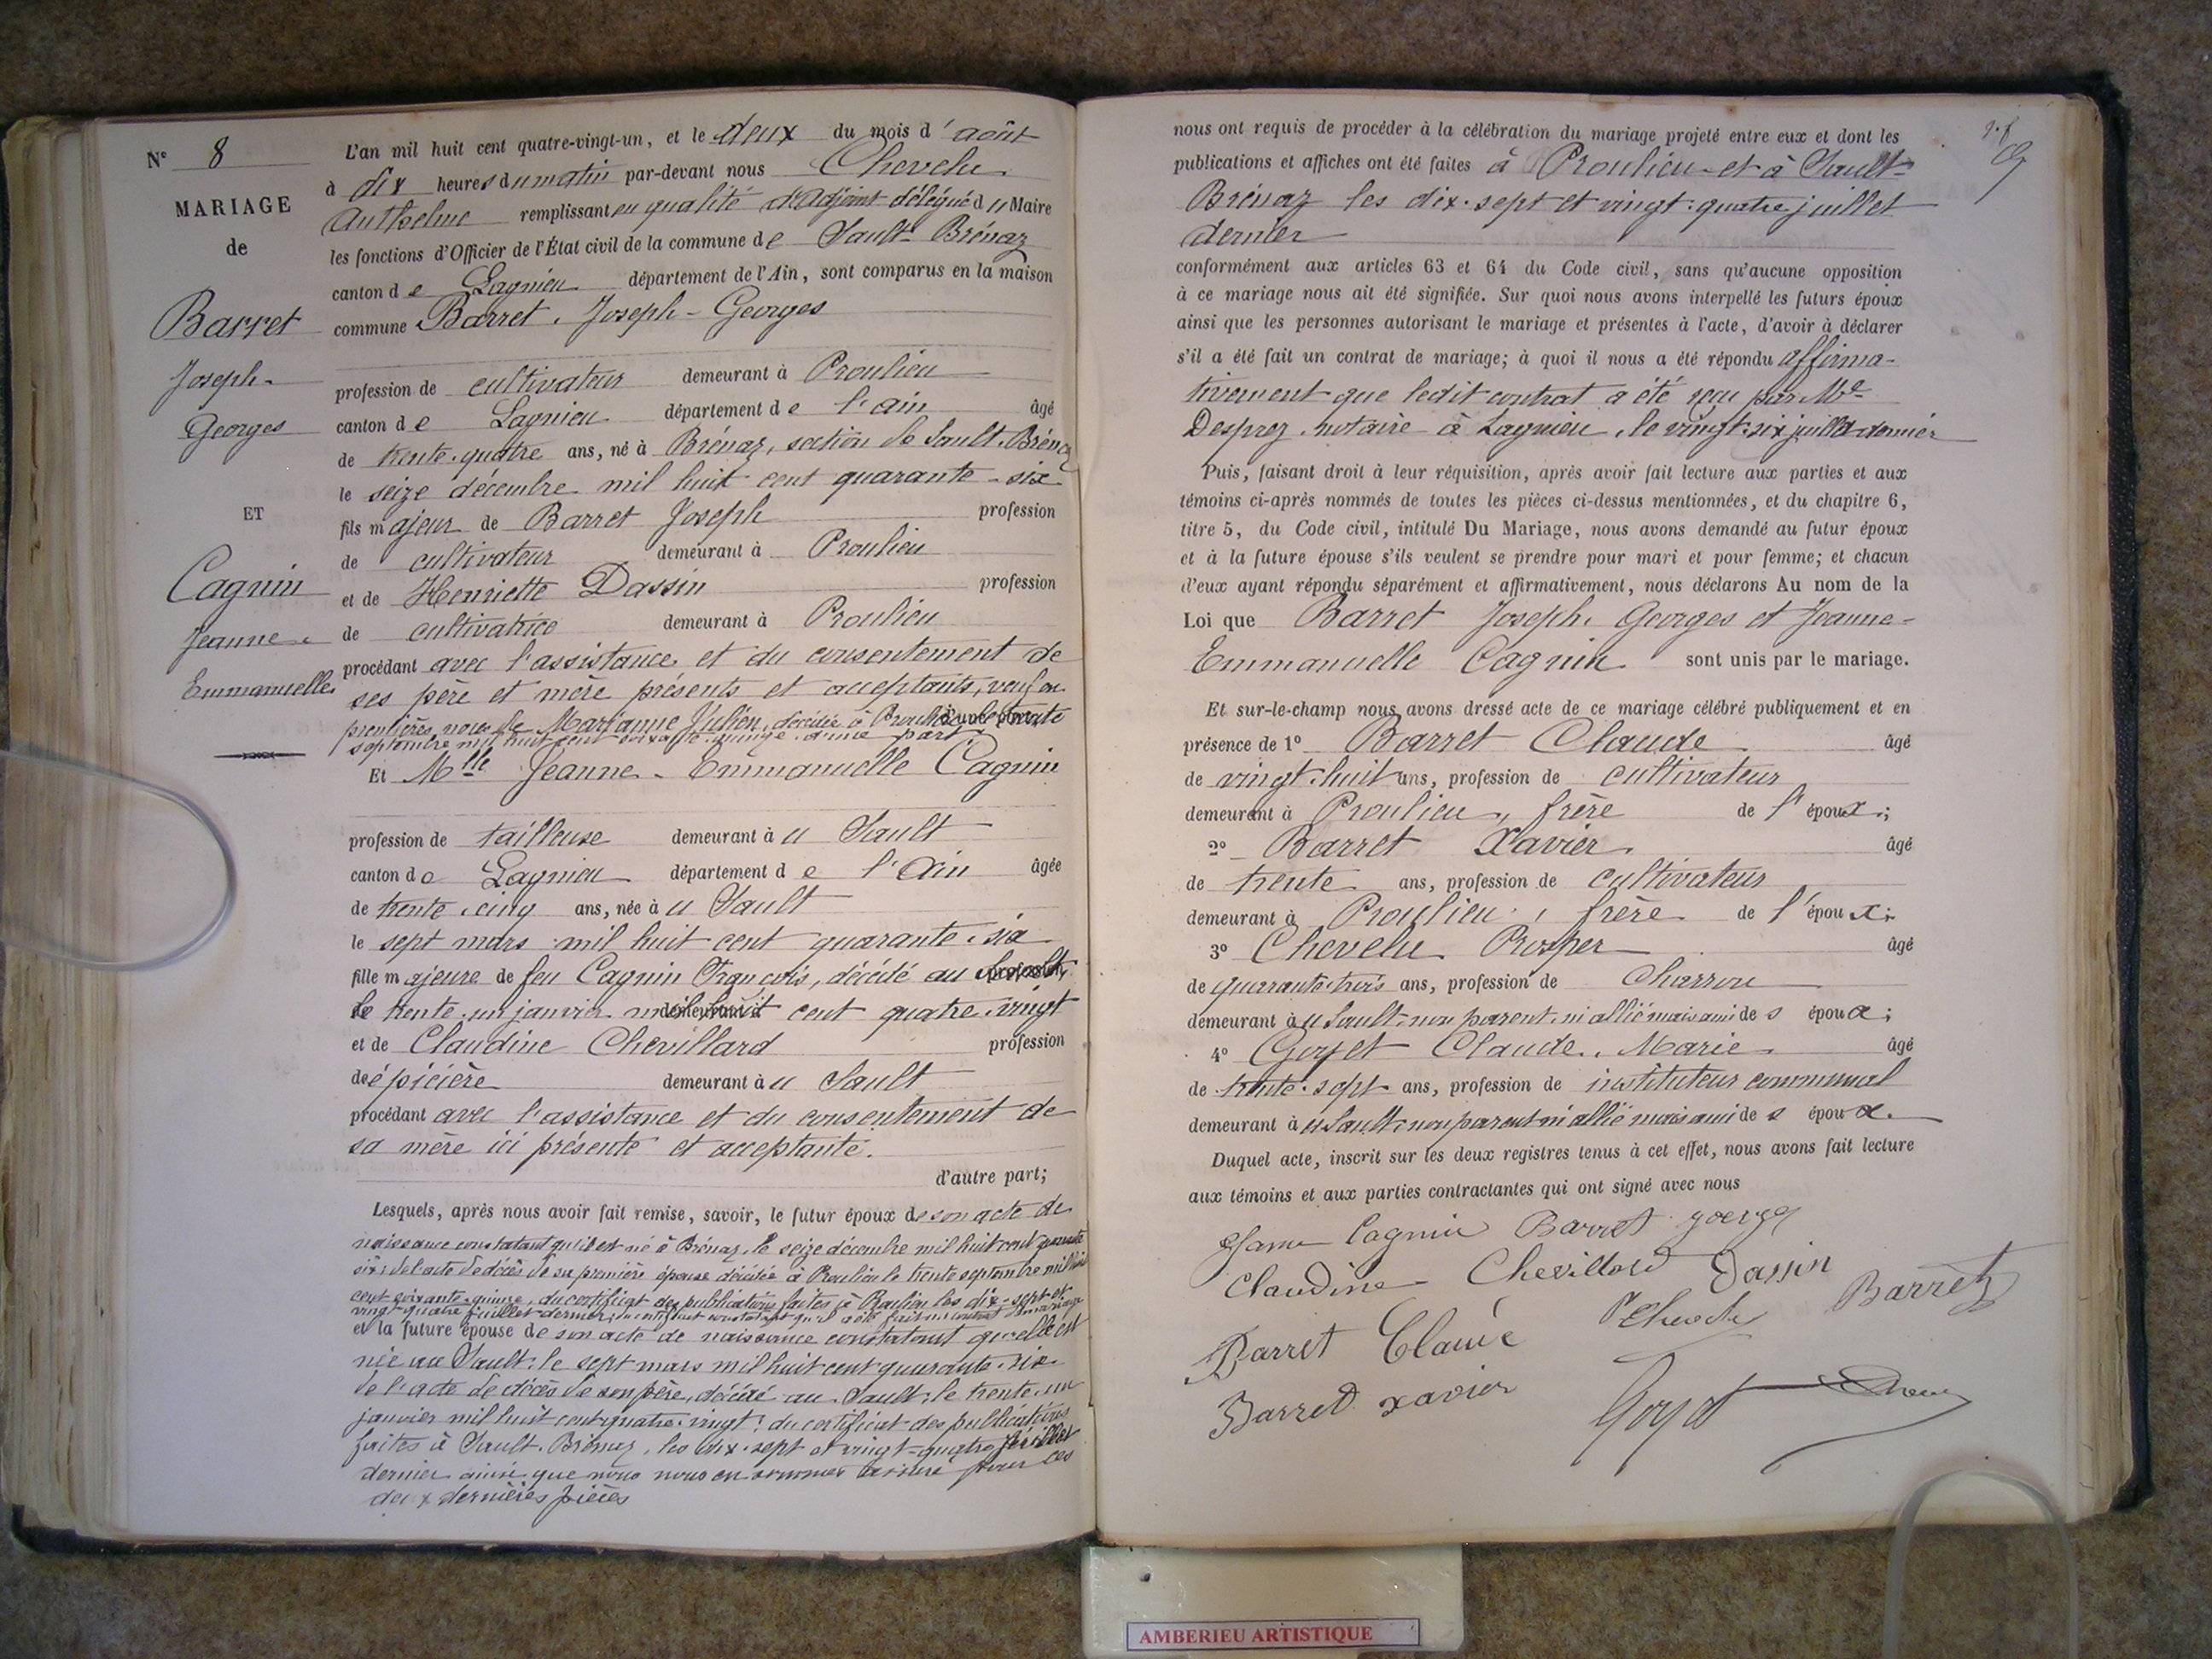 N° 8
MARIAGE
de
Barret
Joseph-
Georges
ET
Cagnin
Jeanne-
Emmanuelle
L'an mil huit cent quatre-vingt-un, et le deux du mois d'août
à dix heures du matin par-devant nous Chevelu
Anthelme remplissant en qualité d'Adjoint délégué du Maire
les fonctions d'Officier de l'État civil de la commune de Sault-Brénaz
canton de Lagnieu département de l'Ain, sont comparus en la maison
commune Barret, Joseph-Georges
profession de cultivateur demeurant à Proulieu
canton de Lagnieu département de l'ain âgé
de trente-quatre ans, né à Brénaz, section de Sault-Brénaz
le seize décembre mil huit cent quarante-six
fils majeur de Barret Joseph profession
de cultivateur demeurant à Proulieu
et de Henriette Dassin profession
de cultivatrice demeurant à Proulieu
procédant avec l'assistance et du consentement de
ses père et mère présents et acceptants, veuf en
premières noces de Marianne Julien, décédée à Proulieu le trente
septembre mil huit cent soixante-quinze d'une part
Et Mlle Jeanne-Emmanuelle Cagnin
profession de tailleuse demeurant à u Sault
canton de Lagnieu département de l'Ain âgée
de trente-cinq ans, née à u Sault
le sept mars mil huit cent quarante-six
fille majeure de feu Cagnin François, décédé au Sault,
le trente-un janvier mil huit cent quatre-vingt
et de Claudine Chevillard profession
de épicière demeurant à u Sault
procédant avec l'assistance et du consentement de
sa mère ici présente et acceptante.
d'autre part;
Lesquels, après nous avoir fait remise, savoir, le futur époux de son acte de
naissance constatant qu'il est né à Brénaz, le seize décembre mil huit cent quarante
six; de l'acte de décès de sa première épouse décédée à Proulieu le trente septembre mil huit
cent soixante-quinze, du certificat des publications faites à Proulieu les dix-sept et
vingt-quatre juillet dernier; du certificat constatant qu'il a été fait un contrat de mariage
et la future épouse de son acte de naissance constatant qu'elle est
née au Sault, le sept mars mil huit cent quarante-six
de l'acte de décès de son père, décédé au Sault, le trente-un
janvier mil huit cent quatre-vingt; du certificat des publications
faites à Sault-Brénaz, les dix-sept et vingt-quatre juillet
dernier ainsi que nous nous en sommes assuré pour ces
deux dernières pièces
nous ont requis de procéder à la célébration du mariage projeté entre eux et dont les
publications et affiches ont été faites à Proulieu et à Sault-
Brénaz les dix-sept et vingt-quatre juillet
dernier
conformément aux articles 63 et 64 du Code civil, sans qu'aucune opposition
à ce mariage nous ait été signifiée. Sur quoi nous avons interpellé les futurs époux
ainsi que les personnes autorisant le mariage et présentes à l'acte, d'avoir à déclarer
s'il a été fait un contrat de mariage; à quoi il nous a été répondu affirma-
tivement que ledit contrat a été reçu par Me
Desprez notaire à Lagnieu, le vingt-six juillet dernier
Puis, faisant droit à leur réquisition, après avoir fait lecture aux parties et aux
témoins ci-après nommés de toutes les pièces ci-dessus mentionnées, et du chapitre 6,
titre 5, du Code civil, intitulé Du Mariage, nous avons demandé au futur époux
et à la future épouse s'ils veulent se prendre pour mari et pour femme; et chacun
d'eux ayant répondu séparément et affirmativement, nous déclarons Au nom de la
Loi que Barret Joseph-Georges et Jeanne-
Emmanuelle Cagnin sont unis par le mariage.
Et sur-le-champ nous avons dressé acte de ce mariage célébré publiquement et en
présence de 1° Barret Claude âgé
de vingt-huit ans, profession de cultivateur
demeurant à Proulieu, frère de l'époux;
2° Barret Xavier âgé
de trente ans, profession de cultivateur
demeurant à Proulieu, frère de l'époux;
3° Chevelu Prosper âgé
de quarante-trois ans, profession de Charron
demeurant à u Sault, non parent ni allié mais ami des époux;
4° Goyet Claude-Marie âgé
de trente-sept ans, profession de instituteur communal
demeurant à u Sault, non parent ni allié mais ami des époux.
Duquel acte, inscrit sur les deux registres tenus à cet effet, nous avons fait lecture
aux témoins et aux parties contractantes qui ont signé avec nous
Jame Cagnin Barret Joerge
Claudine Chevillard Dassin
Barret
Barret Claude
Barret xavier Goyet
AMBERIEU ARTISTIQUE